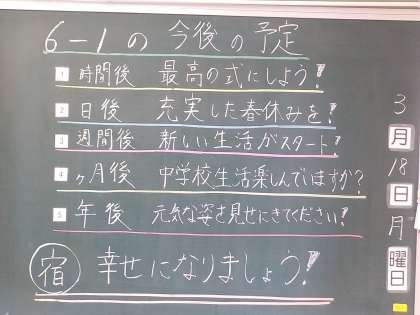 6-1の今後の予定
1 時間後 最高の式にしよう!
2 日後 充実した春休みを!
3 週間後 新しい生活がスタート!
4 ヶ月後 中学校生活楽しんでいますか?
5 年後 元気な姿を見せにきてください!
宿 幸せになりましょう!
3月18日月曜日